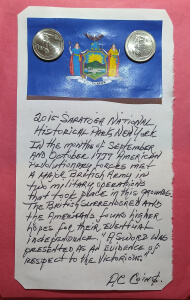 2015 SARATOGA NATIONAL
HISTORICAL PARK NEW YORK
IN THE MONTHS OF SEPTEMBER
AND OCTOBER 1777 AMERICAN
REVOLUTIONARY FORCES MET
A MAJOR BRITISH ARMY IN
TWO MILITARY OPERATIONS
THAT TOOK PLACE IN THIS GROUNDS.
THE BRITISH SURRENDERED AND
THE AMERICANS FOUND HIGHER
HOPES FOR THEIR EVENTUAL
INDEPENDENCE. A SWORD WAS
PRESENTED AS AN EVIDENCE OF
RESPECT TO THE VICTORIOUS
DC COINS.